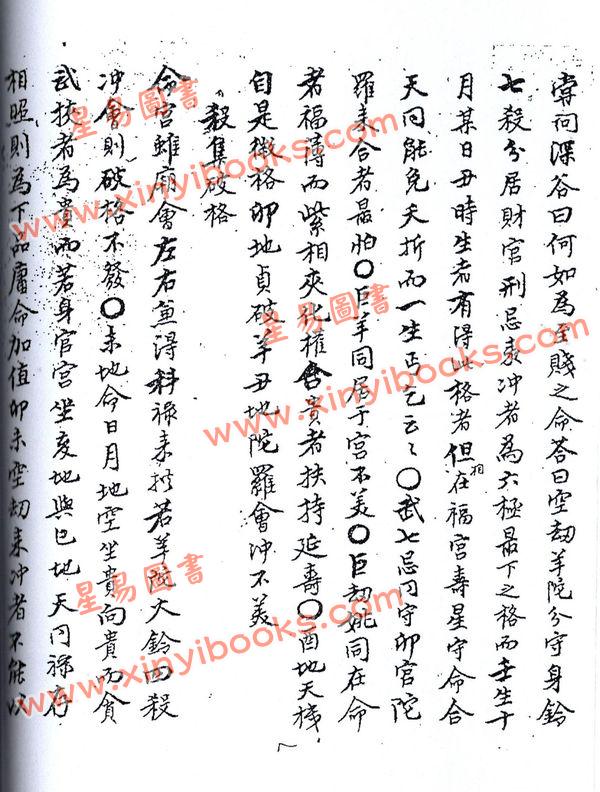 嘗问深谷曰何如為至賤之命荅曰空劫羊陀分守身鈴
七殺分居財官刑忌来冲者為六極最下之格而壬生十
月某日丑時生者有得此格者但在福宫壽星守命合
相
天同能免夭折而一生丐乞云々〇武七忌同守卯宫陀
羅来合者最怕〇巨羊同居子宫不美〇巨劫姚同在命
者福薄而紫相夾化權合貴者扶持延壽〇酉地天機
自是微格卯地貞破羊丑地陀羅會冲不美
殺集破格
命宫雖廟會左右兼得科禄来拱若羊陀火鈴四殺
冲會則破格不發〇未地命日月地空坐貴向貴而貧
武扶者為貴而若身官宫坐亥地與巳地天同禄存
相照則為下品庸命加值卯未空劫来冲者不能以
星易圖書
www.xinyibooks.com
星易圖書
www.xinyibooks.com
星易圖書
www.xinyibooks.com